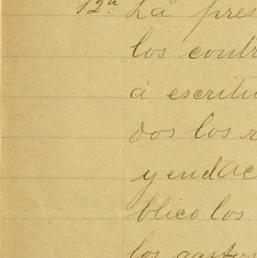 12ª La pres
los contr
á escritu
dos los r
y endac
blico los
los gastos